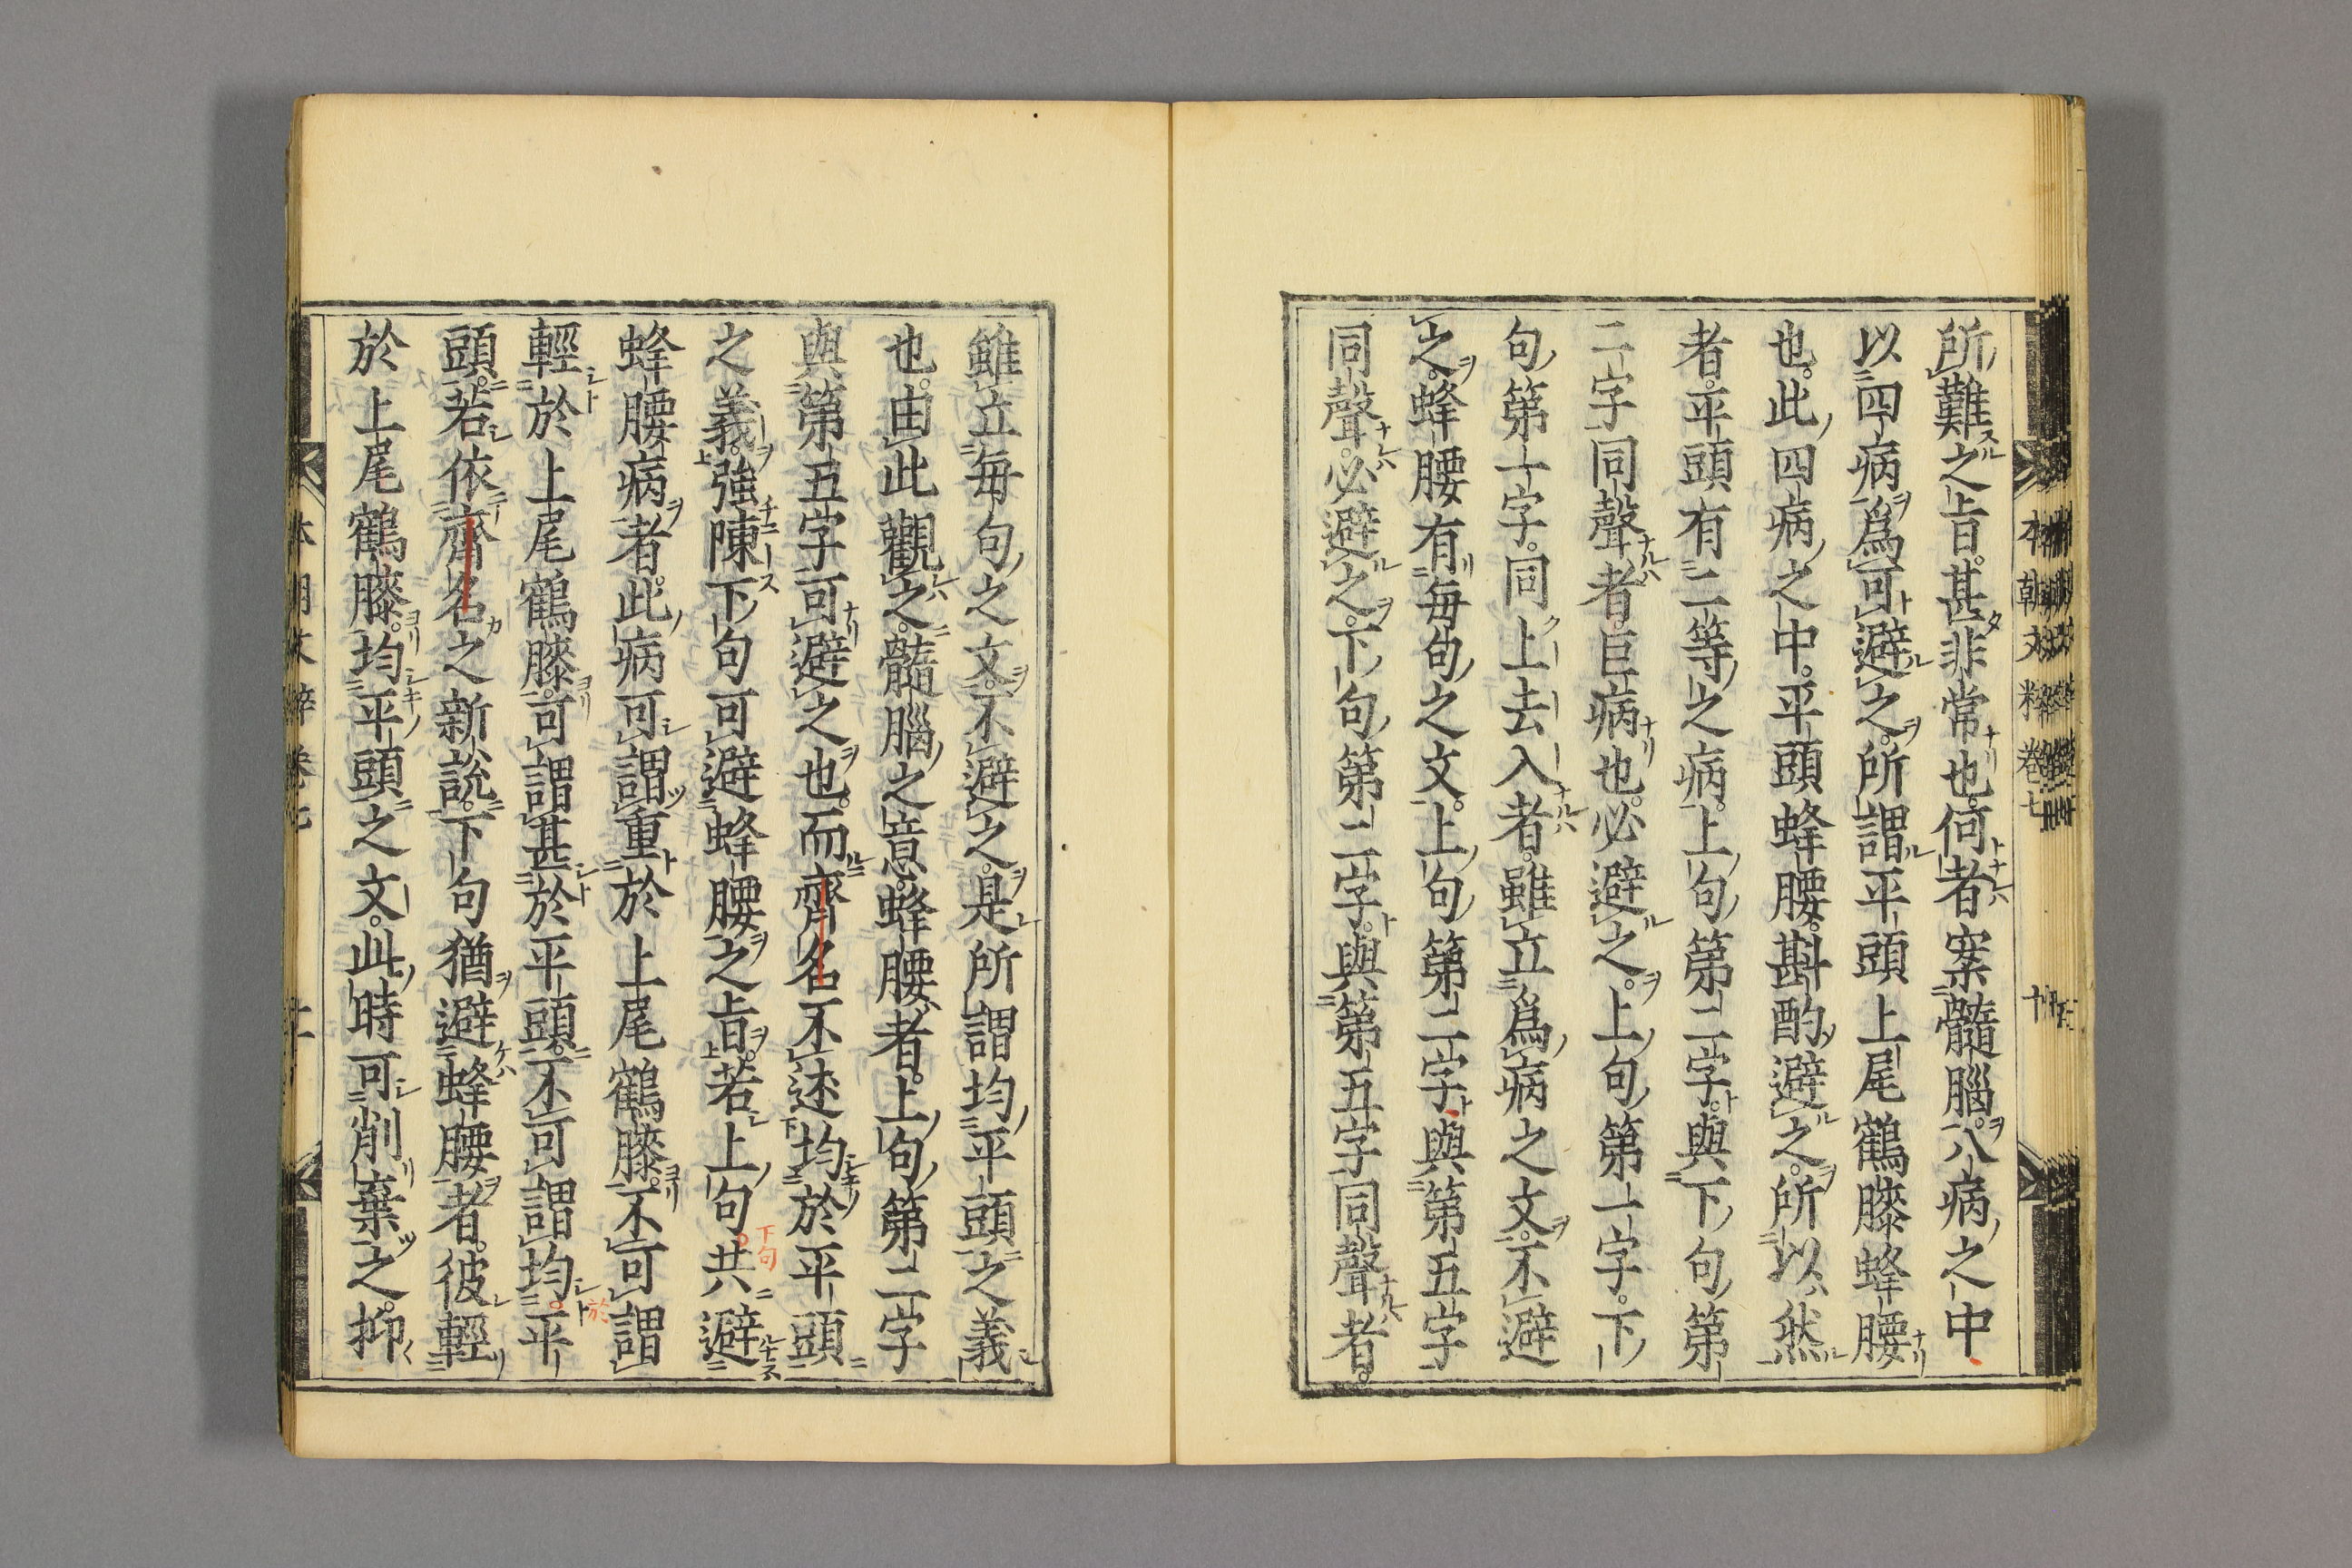 所難之旨。甚非常也。何者案髓腦。八病之中
以四病爲可避之。所謂平頭上尾鶴膝蜂腰
也。此四病之中。平頭蜂腰。斟酌避之。所以然
者。平頭有二等之病。上句第二字。與下句第
二字同聲者。巨病也。必避之。上句第一字。下
句第十字。同上去入者。雖立爲病之文。不避
之。蜂腰有每句之文。上句第二字與第五字
同聲。必避之。下句第二字。與第五字同聲者。
雖立每句之文。不避之。是所謂均平頭之義
也。由此觀之。髓腦之意。蜂腰者。上句第二字
與第五字可避之也。而齊名不述均於平頭
之義。強陳下句可避蜂腰之旨。若上句。共避
下句
蜂腰病者。此病可謂重於上尾鶴膝。不可謂
輕於上尾鶴膝。可謂甚於平頭。不可謂均。平
於
頭。若依齊名之新說。下句猶避蜂腰者。彼輕
於上尾鶴膝。均平頭之文。此時可削棄之。抑
本朝文粹卷七